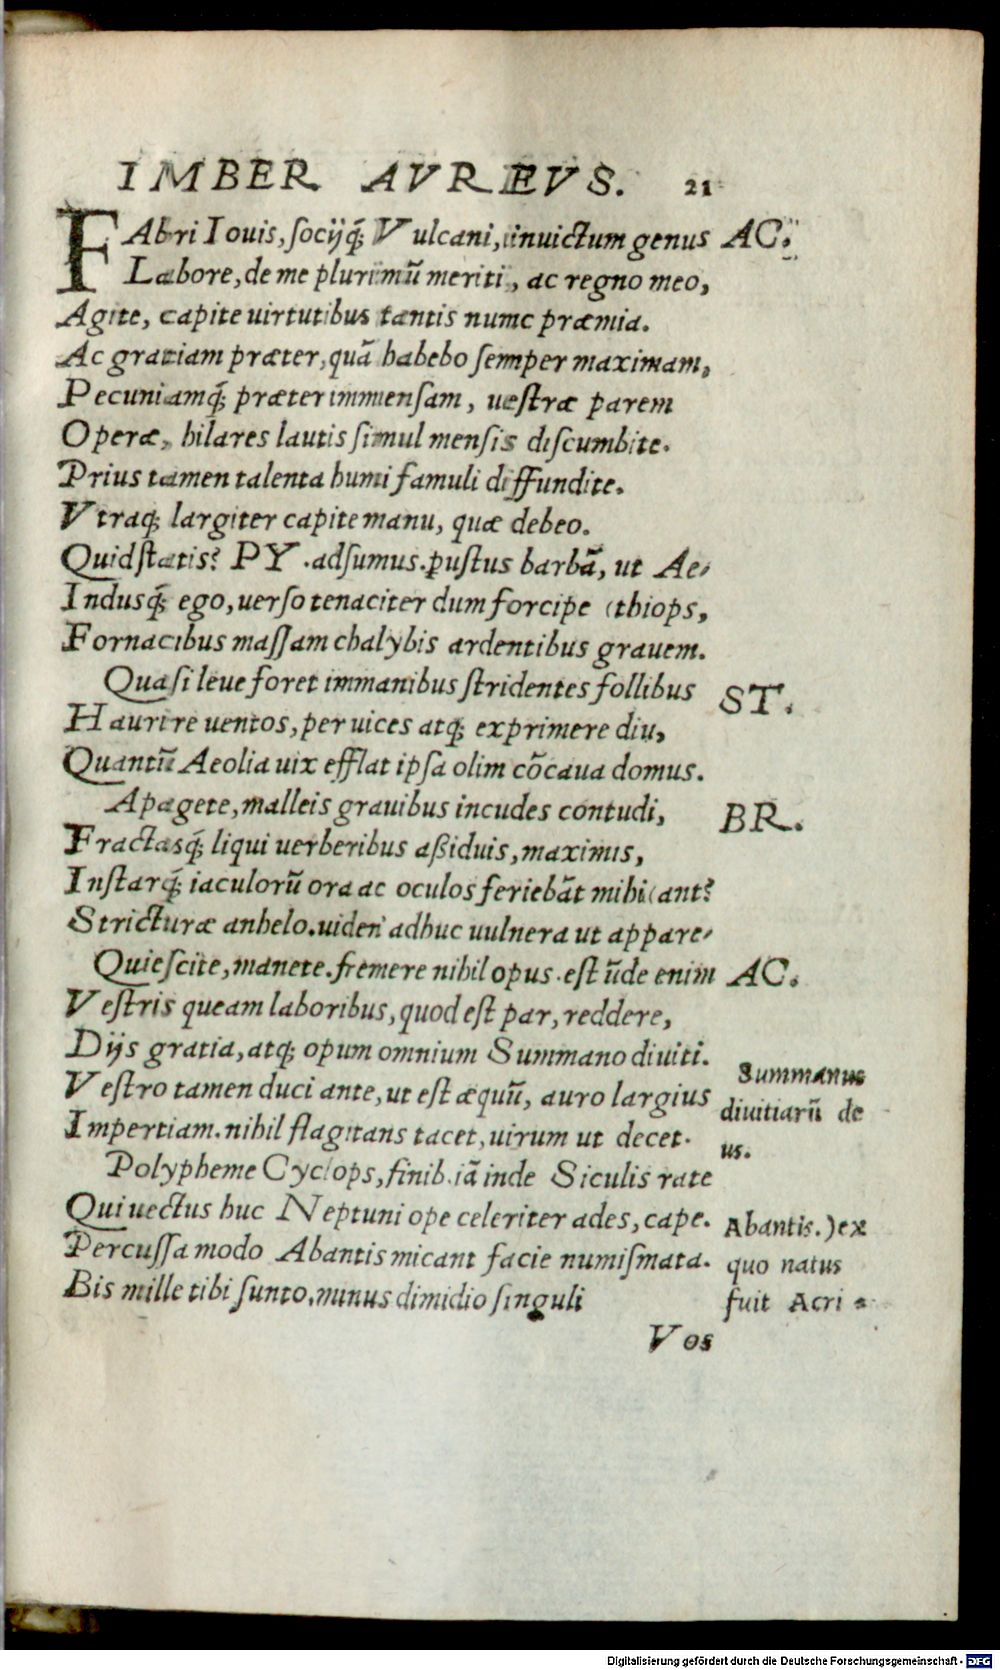 IMBER AVREVS. 21
FAbri Iouis, socijq́; Vulcani, inuictum genus AC.
Labore, de me plurimū meriti, ac regno meo,
Agite, capite uirtutibus tantis nunc præmia.
Ac gratiam præter, quā habebo semper maximam,
Pecuniamq́; præter immensam, uestræ parem
Operæ, hilares lautis simul mensis discumbite.
Prius tamen talenta humi famuli diffundite.
Vtraq; largiter capite manu, quæ debeo.
Quid statis? PY. adsumus. pustus barbā, ut Ae-
Indusq́; ego, uerso tenaciter dum forcipe (thiops,
Fornacibus massam chalybis ardentibus grauem.
Quasi leue foret immanibus stridentes follibus ST.
Haurire uentos, per uices atq; exprimere diu,
Quantū Aeolia uix efflat ipsa olim cōcaua domus.
Apagete, malleis grauibus incudes contudi, BR.
Fractasq́; liqui uerberibus aßiduis, maximis,
Instarq́; iaculorū ora ac oculos feriebāt mihi (ant?
Stricturæ anhelo. uiden' adhuc uulnera ut appare-
Quiescite, manete. fremere nihil opus. est ūde enim AC.
Vestris queam laboribus, quod est par, reddere,
Dijs gratia, atq; opum omnium Summano diuiti.
Vestro tamen duci ante, ut est æquū, auro largius
Impertiam. nihil flagitans tacet, uirum ut decet.
Polypheme Cyclops, finib. iā inde Siculis rate
Qui uectus huc Neptuni ope celeriter ades, cape.
Percussa modo Abantis micant facie numismata.
Bis mille tibi sunto, minus dimidio singuli
Summanus
diuitiarū de
us.
Abantis.) ex
quo natus
fuit Acri-
Vos
Digitalisierung gefördert durch die Deutsche Forschungsgemeinschaft - DFG